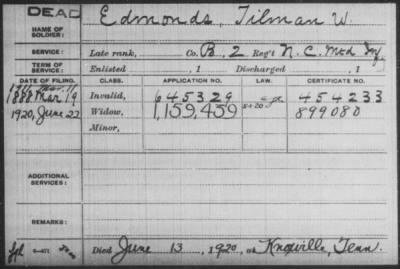 DEAD
NAME OF SOLDIER: Edmonds, Tilman W.
SERVICE: Late rank, Co. B, 2 Reg't N.C. Mtd Inf.
TERM OF SERVICE: Enlisted , 1 Discharged , 1
DATE OF FILING. CLASS. APPLICATION NO. LAW. CERTIFICATE NO.
1888 Mar 19 Invalid, 645329 454233
1920, June 22 Widow, 1,159,459 899080
Minor,
ADDITIONAL SERVICES:
REMARKS:
Died June 13, 1920, at Knoxville, Tenn.